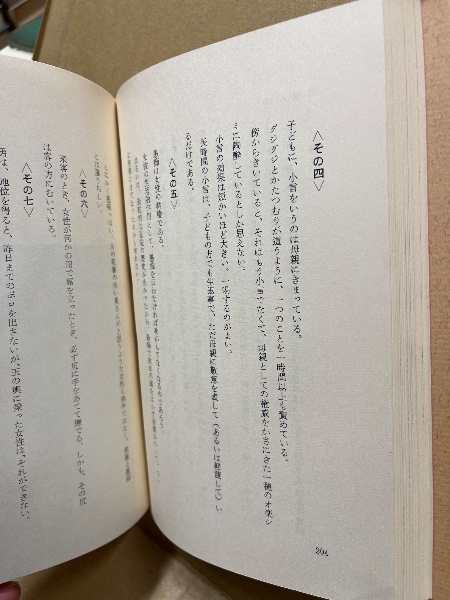 〈その四〉
子どもに、小言をいうのは母親にきまっている。
グジグジとかたつむりが這うように、一つのことを一時間以上も責めている。
傍からきいていると、それはもう小言でなくて、母親としての権威をかさにきた一種のオ楽シ
ミに陶酔しているとしか思えない。
小言の効果は短かいほど大きい。一喝するのがよい。
長時間の小言は、子どもの方でも生返事で、ただ母親に敬意を表して（あるいは軽蔑して）い
るだけである。
〈その五〉
愚痴は女性の特権である。
〈その六〉
来客のとき、女性が何かの用で席を立ったとき、必ず尻に手をあてて撫でる。しかも、その尻
は客の方にむいている。
〈その七〉
男は、地位を得ると、昨日までのボロを出さないが、玉の輿に乗った女性は、それができない。
204